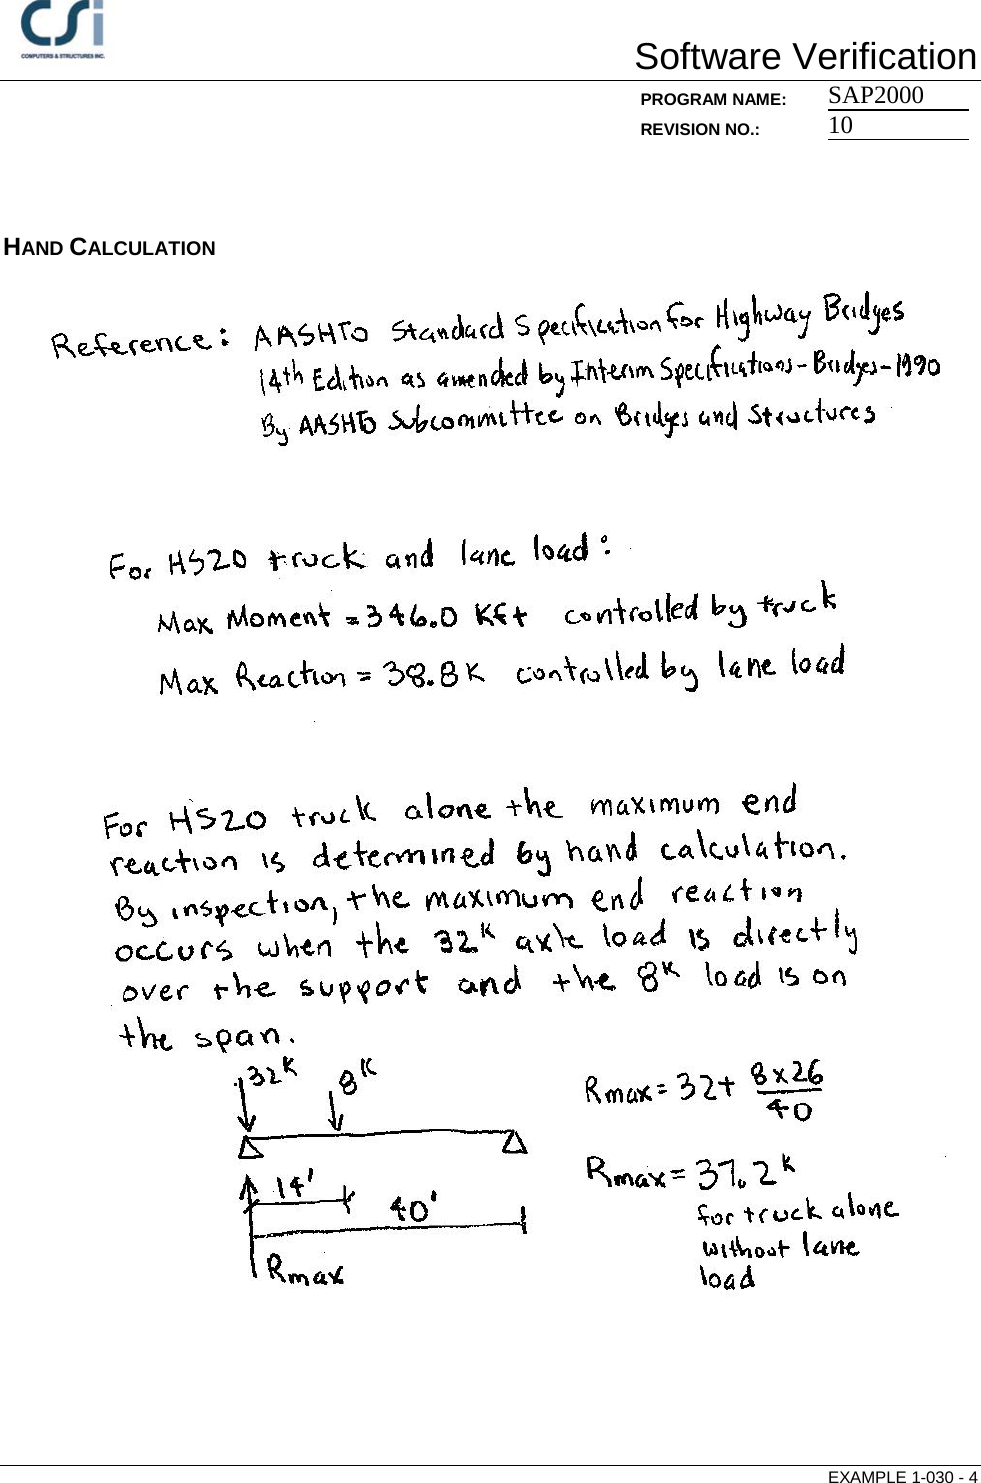 CSi
COMPUTERS & STRUCTURES INC.
Software Verification
PROGRAM NAME: SAP2000
REVISION NO.: 10
HAND CALCULATION
Reference: AASHTO Standard Specification for Highway Bridges
14th Edition as amended by Interim Specifications-Bridges-1990
By AASHTO Subcommittee on Bridges and Structures
For HS20 truck and lane load:
Max Moment = 346.0 Kft controlled by truck
Max Reaction = 38.8K controlled by lane load
For HS20 truck alone the maximum end
reaction is determined by hand calculation.
By inspection, the maximum end reaction
occurs when the 32K axle load is directly
over the support and the 8K load is on
the span.
32K 8K
Rmax = 32 + 8x26/40
14'
40'
Rmax
Rmax = 37.2K
for truck alone
without lane
load
EXAMPLE 1-030 - 4